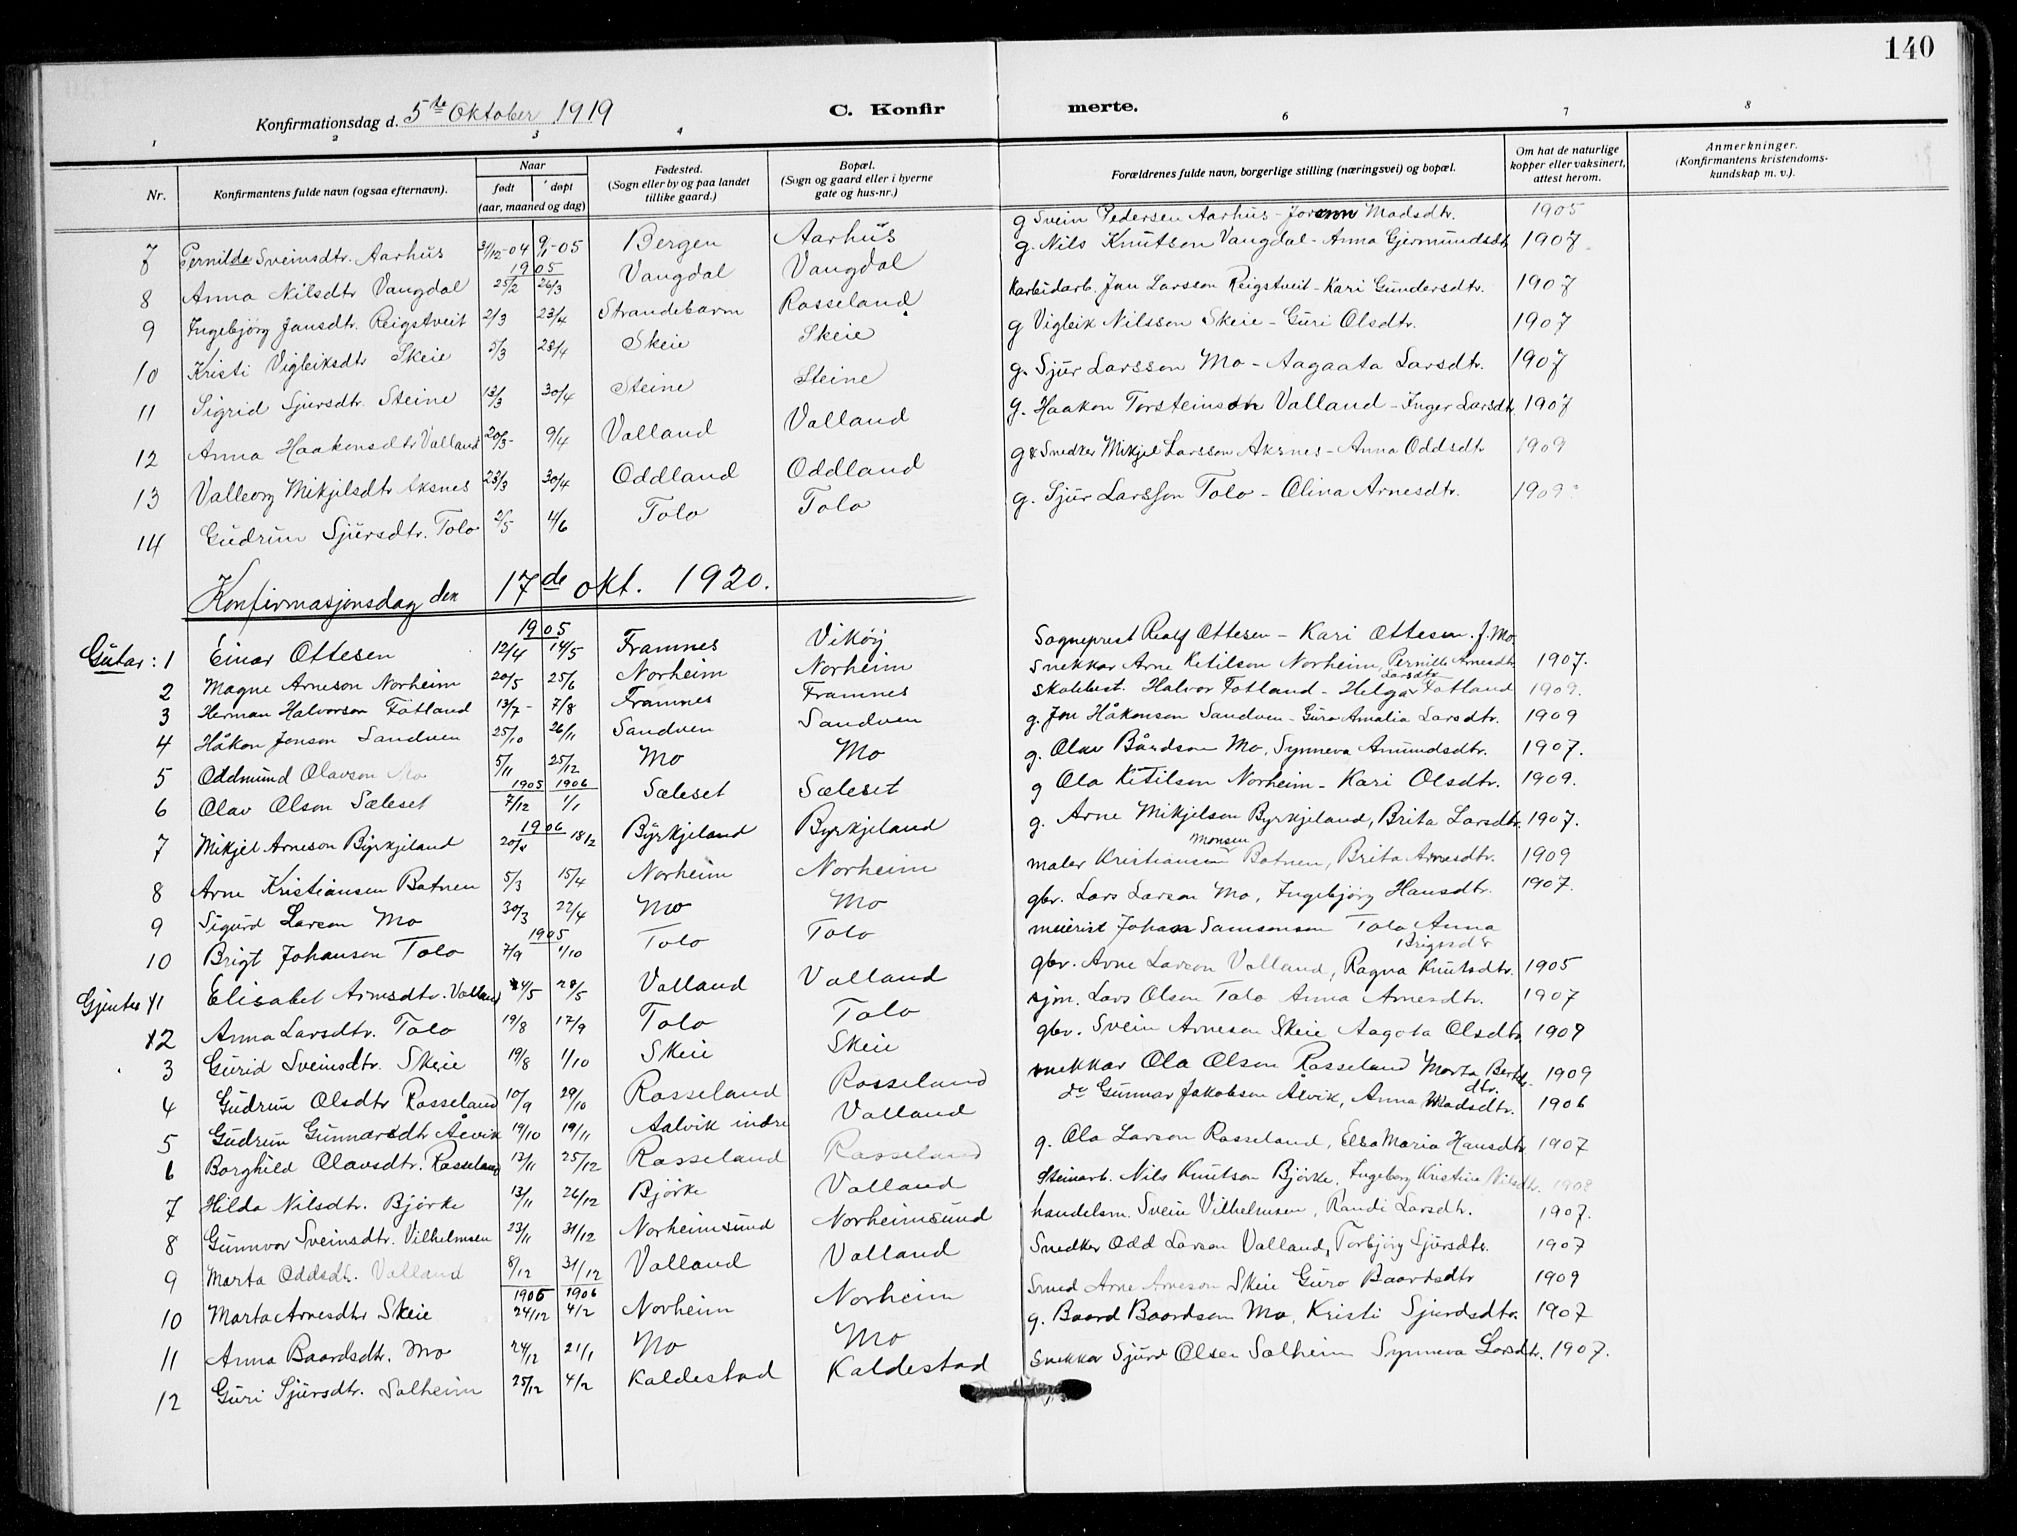 140
Konfirmationsdag d. 5te Oktober 1919 C. Konfirmerte.
1 2 3 4 6 7 8
Nr. Konfirmantens fulde navn (ogsaa efternavn). Naar født døpt (aar, maaned og dag) Fødested. (Sogn eller by og paa landet tillike gaard.) Bopæl. (Sogn og gaard eller i byerne gate og hus-nr.) Forældrenes fulde navn, borgerlige stilling (næringsvei) og bopæl. Om hat de naturlige kopper eller vaksinert, attest herom. Anmerkninger. (Konfirmantens kristendomskundskap m. v.).
7 Pernilde Sveinsdtr. Aarhus 31/12-04 9/1-05 Bergen Aarhus g Svein Pedersen Aarhus - Madsdtr. 1905
1905
8 Anna Nilsdtr Vangdal 25/2 26/3 Vangdal Vangdal g. Nils Knutson Vangdal - Anna Gjermundsdtr 1907
9 Ingebjörg Jansdtr. Reigstveit 2/3 23/4 Strandebarm Rosseland Karbidarb. Jan Larsson Reigstveit - Kari Gundersdtr. 1907
10 Kristi Vigleiksdtr Skeie 5/3 23/4 Skeie Skeie g Vigleik Nilsson Skeie - Guri Olsdtr. 1907
11 Sigrid Sjursdtr. Steine 13/3 30/4 Steine Steine g. Sjur Larsson Mo - Aagaata Larsdtr. 1907
12 Anna Haakonsdtr Valland 20/3- 9/4 Valland Valland g. Haakon Torsteinson Valland - Inger Larsdtr 1907
13 Valborg Mikjelsdtr Aksnes 23/3 30/4 Oddland Oddland g & Snedker Mikjel Larsson Aksnes - Anna Oddsdtr 1909
14 Gudrun Sjursdtr. Tolo 2/5 4/6 Tolo Tolo g. Sjur Larsson Tolo - Olina Arnesdtr. 1909
Konfirmasjonsdag den 17de okt. 1920.
1905
Gutar: 1 Einar Ottesen 12/4 14/5 Framnes Vikøy Sogneprest Rolf Ottesen - Kari Ottesen f. Mo
2 Magne Arneson Norheim 20/5 25/6 Norheim Norheim Snekkar Arne Ketilson Norheim, Pernille Arnesdtr 1907.
3 Herman Halvorson Fotland 13/7- 7/8 Framnes Framnes Skolebest. Halvor Fotland - Helga Larsdtr Fotland 1909.
4 Håkon Jonson Sandven 25/10 26/11 Sandven Sandven g. Jon Håkonson Sandven - Guro Amalia Larsdtr. 1909
5 Oddmund Olavson Mo 5/11 25/12 Mo Mo g. Olav Bårdson Mo, Synneva Amundsdtr. 1907.
1905 1906
6 Olav Olson Sæleset 7/12 1/1 Sæleset Sæleset g Ola Ketilson Norheim - Kari Olsdtr. 1909.
1906
7 Mikjel Arneson Byrkjeland 20/1 18/2 Byrkjeland Byrkjeland g. Arne Mikjelson Byrkjeland, Brita Larsdtr. 1907.
8 Arne Kristiansen Botnen 5/3 15/4 Norheim Norheim maler Kristiansen Monsen Botnen, Brita Arnesdtr. 1909
9 Sigurd Larson Mo 30/3 22/4 Mo Mo gbr. Lars Larson Mo, Ingebjörg Hansdtr. 1907.
1905
10 Brigt Johansen Tolo 7/9 1/10 Tolo Tolo meierist Johan Samsonsen Tolo Anna Brigtsdtr
Gjenter 11 Elisabet Arnesdtr. Valland 24/5 28/5 Valland Valland gbr. Arne Larson Valland, Ragna Knutsdtr. 1905
12 Anna Larsdtr. Tolo 19/8 17/9 Tolo Tolo sjm. Lars Olson Tolo Anna Arnesdtr. 1907
3 Gurid Sveinsdtr. Skeie 19/8 1/10 Skeie Skeie gbr. Svein Arneson Skeie Aagota Olsdtr 1909
4 Gudrun Olsdtr Rosseland 10/9 29/10 Rosseland Rosseland snekkar Ola Olson Rosseland Marta Bertels-dtr. 1909
5 Gudrun Gunnarsdtr Alvik 19/10 19/11 Aalvik indre Valland do Gunnar Jakobson Alvik, Anna Madsdtr. 1906
6 Borghild Olavsdtr. Rosseland 13/11 25/12 Rosseland Rosseland g. Ola Larson Rosseland, Elsa Maria Hansdtr 1907
7 Hilda Nilsdtr. Bjørke 13/11 26/12 Bjørke Valland Steinarb. Nils Knutson Bjørke, Ingeborg Kristine Nilsdtr. 1908
8 Gunnvor Sveinsdtr. Vilhelmsen 23/11 31/12 Norheimsund Norheimsund handelsm. Svein Vilhelmsen, Randi Larsdtr. 1907.
9 Marta Oddsdtr. Valland 8/12 31/12 Valland Valland Snedker Odd Larson Valland, Torbjörg Sjursdtr. 1907
1905 1906
10 Marta Arnesdtr Skeie 24/12 4/2 Norheim Norheim Smed Arne Arneson Skeie Guro Baardsdtr 1909
11 Anna Baardsdtr. Mo 24/12 21/1 Mo Mo g. Baard Baardson Mo, Kristi Sjurdsdtr. 1907
12 Guri Sjursdtr. Solheim 25/12 4/2 Kaldestad Kaldestad Snekkar Sjurd Olsen Solheim Synneva Larsdtr. 1907.